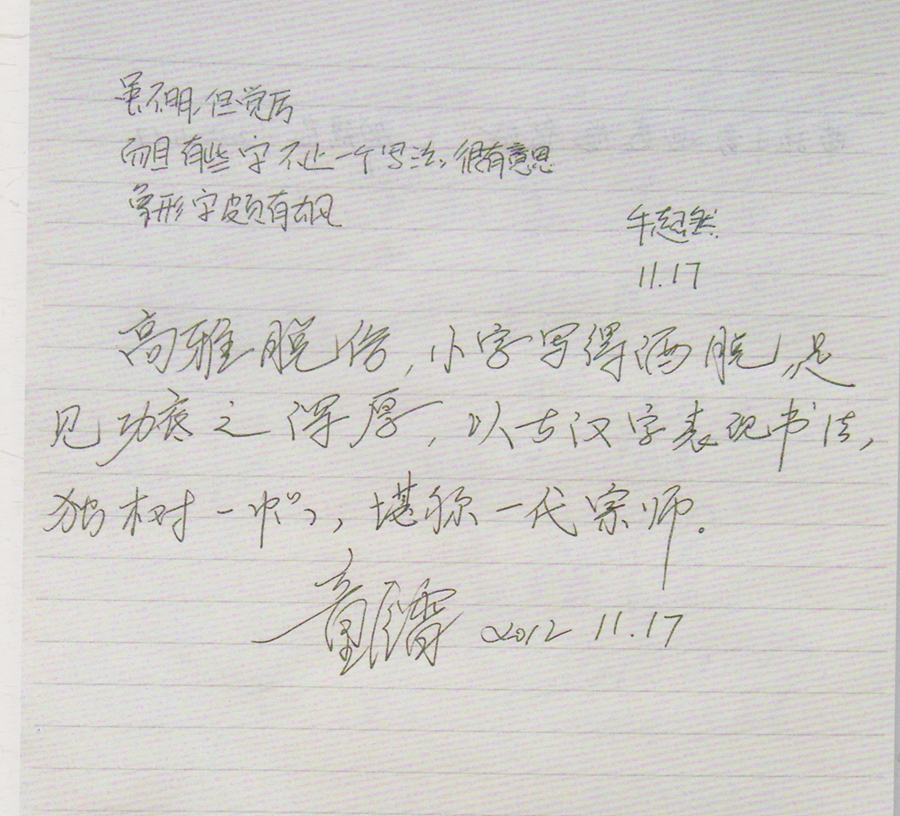 虽不明,但觉厉
而且有些字不止一个写法,很有意思
象形字颇有古风
牛超然
11.17
高雅脱俗,小字写得洒脱,足
见功底之深厚,以古汉字表现书法,
独树一帜,堪称一代宗师。
童
2012 11.17